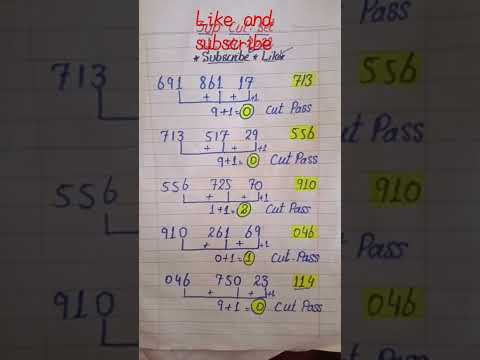 Like and
subscribe
* Subscribe * Like
691 861 17 713
+ + +1
9+1=0 Cut Pass
713 517 29 556
+ + +1
9+1=0 Cut Pass
556 725 70 910
+ + +1
1+1=2 Cut Pass
910 261 69 046
+ + +1
0+1=1 Cut-Pass
046 750 23 114
+ + +1
9+1=0 Cut Pass
713
556
910
556
910
046